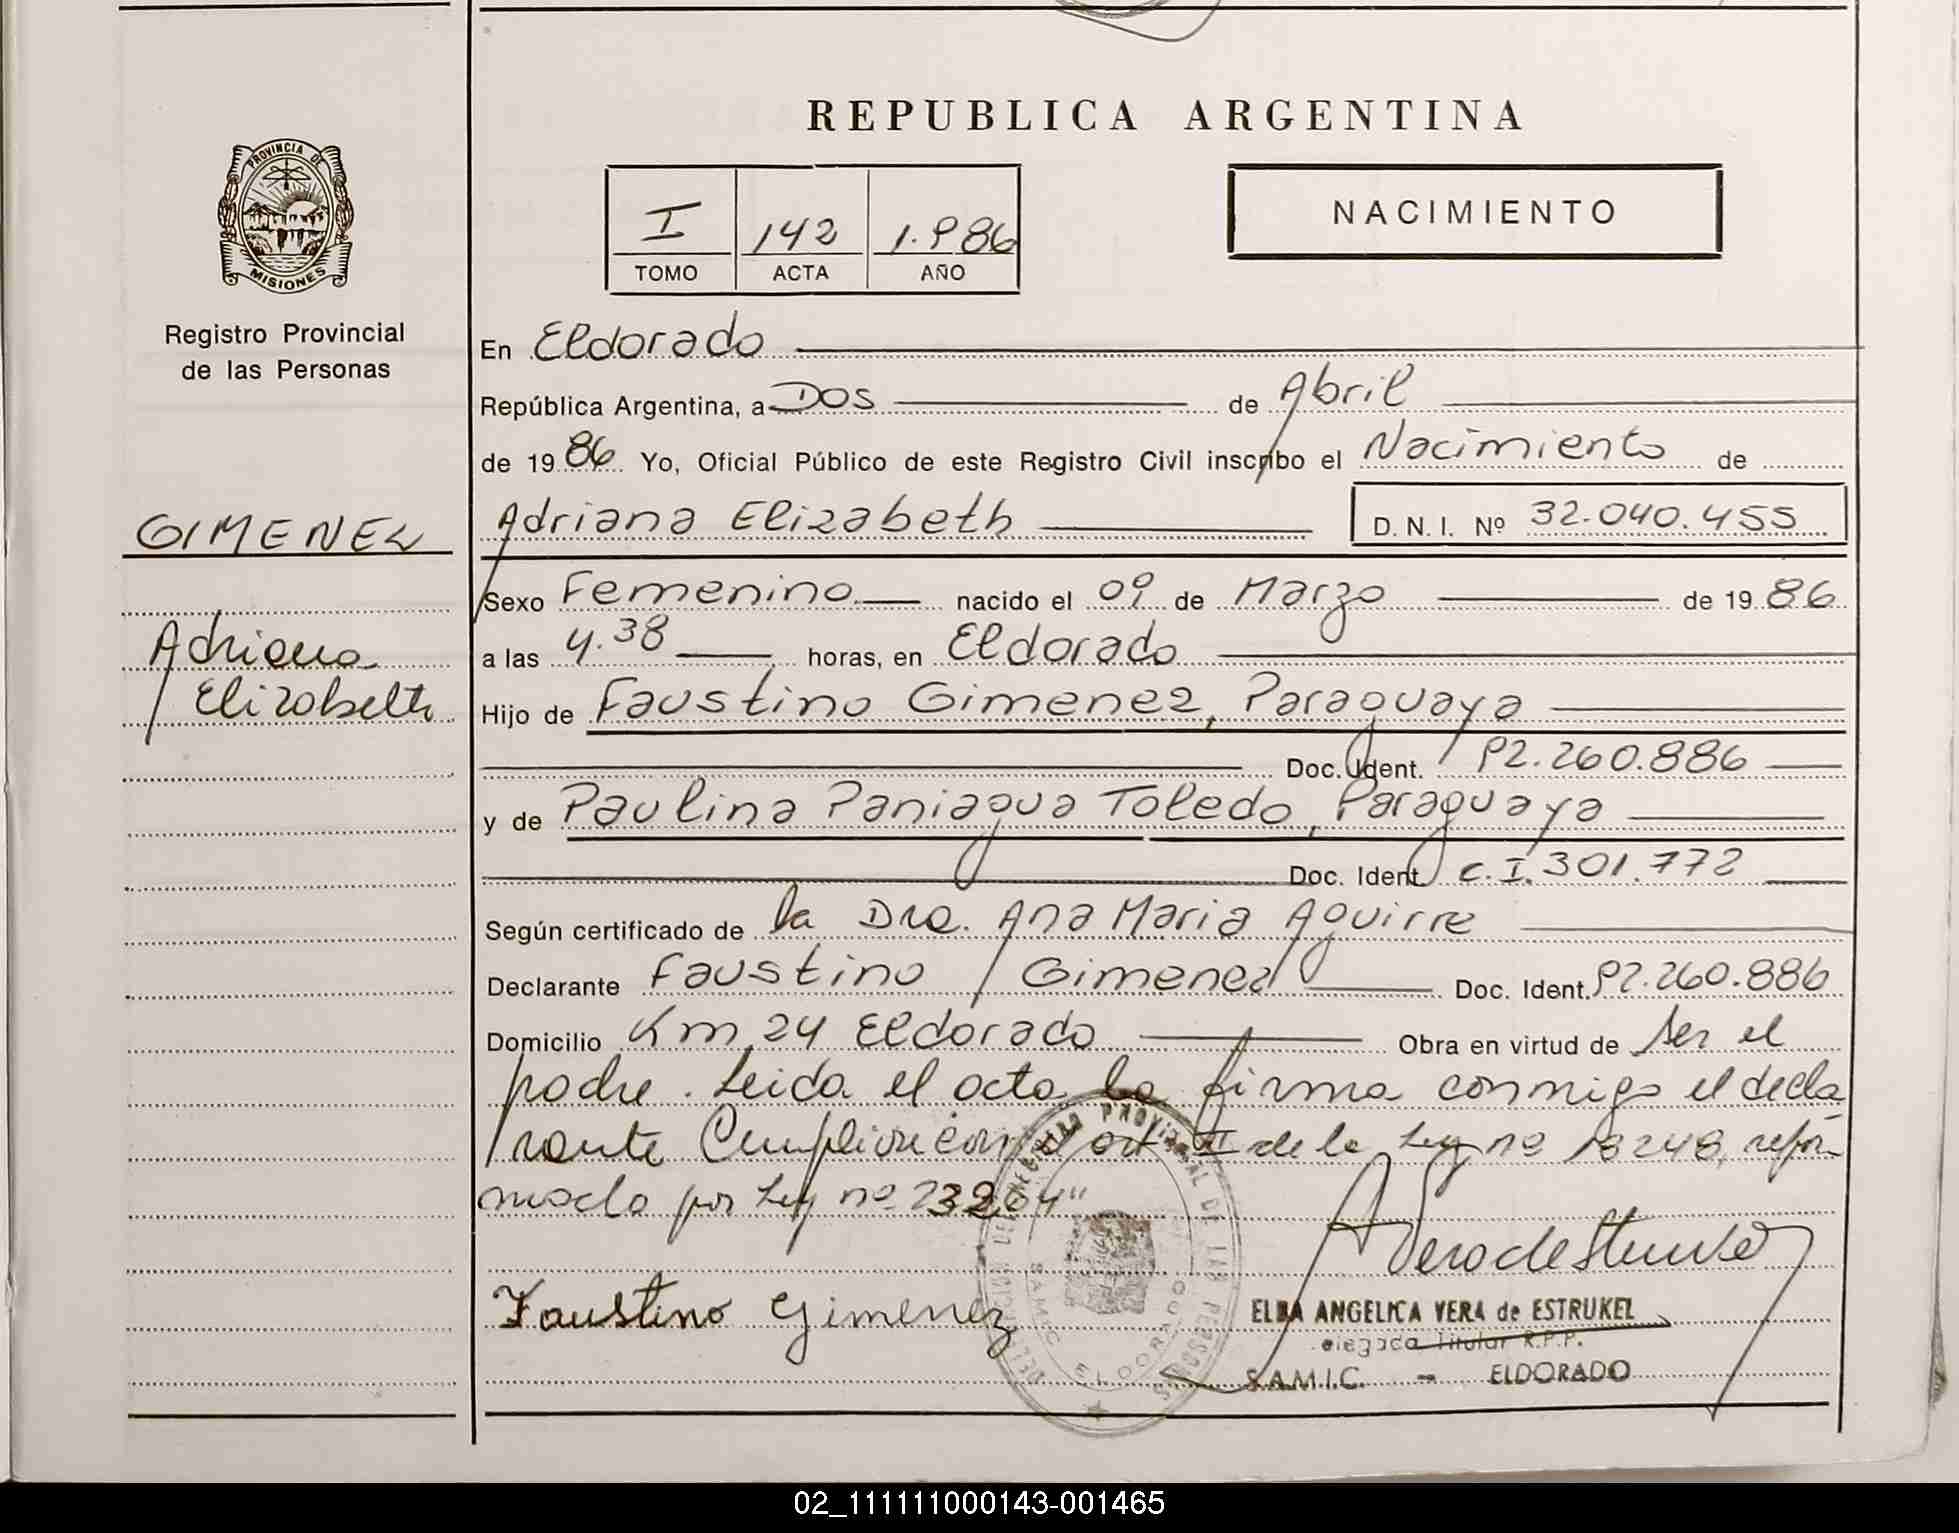 REPUBLICA ARGENTINA
PROVINCIA DE
MISIONES
Registro Provincial
de las Personas
I 142 1.986
TOMO ACTA AÑO
NACIMIENTO
En Eldorado
República Argentina, a Dos de Abril
de 1986 Yo, Oficial Público de este Registro Civil inscribo el Nacimiento de
GIMENEZ
Adriana Elizabeth D. N. I. Nº 32.040.455
Sexo Femenino nacido el 09 de Marzo de 1986
Adriana
a las 4.38 horas, en Eldorado
Elizabeth
Hijo de Faustino Gimenez, Paraguaya
Doc. Ident. 92.260.886
y de Paulina Paniagua Toledo, Paraguaya
Doc. Ident. C.I. 301.772
Según certificado de la Dra. Ana Maria Aguirre
Declarante Faustino Gimenez Doc. Ident. 92.260.886
Domicilio Km 24 Eldorado Obra en virtud de ser el
padre. Leida el acta la firma conmigo el decla
rante Cumpli con el art II de la Ley nº 18248, refor-
mado por Ley nº 23264"
Faustino Gimenez
ELBA ANGELICA VERA de ESTRUKEL
Titular R.P.P.
S.A.M.I.C. - ELDORADO
REGISTRO PROVINCIAL DE LAS PERSONAS
SAMIC ELDORADO
02_111111000143-001465